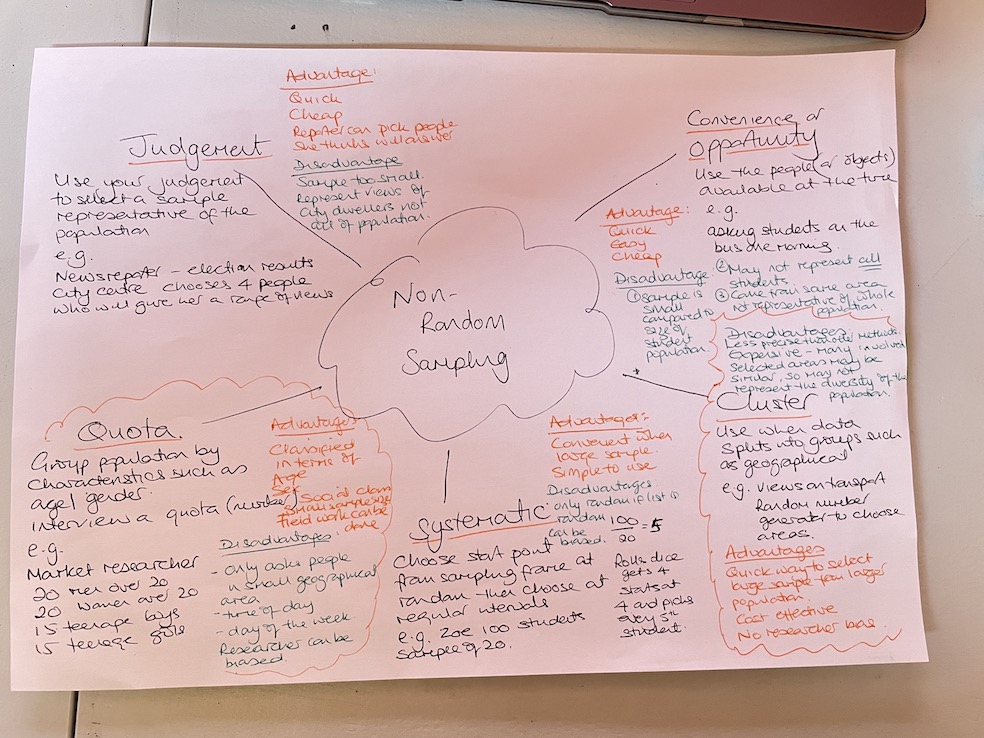 Non-
Random
Sampling
Judgement
Use your judgement
to select a sample
representative of the
population
e.g.
News reporter - election results
City centre chooses 4 people
who will give her a range of views
Advantage:
Quick
Cheap
Reporter can pick people
she thinks will answer
Disadvantage
Sample too small.
Represent views of
city dwellers not
all of population.
Convenience or
Opportunity
Use the people (or objects)
available at the time
e.g.
asking students on the
bus one morning.
Advantage:
Quick
Easy
Cheap
Disadvantage
① Sample is
small
compared to
size of
student
population.
② May not represent all
students.
③ Came from same area
not representative of whole
population.
Quota.
Group population by
characteristics such as
age/gender.
interview a quota (number)
e.g.
Market researcher
20 men over 20
20 women over 20
15 teenage boys
15 teenage girls
Advantages
Classified
in terms of
Age
Sex
Social class
Small sample size
Field work can be
done
Disadvantages:
- only asks people
in small geographical
area
- time of day
- day of the week.
Researcher can be
biased.
Systematic
Choose start point
from sampling frame at
random then choose at
regular intervals
e.g. Zoe 100 students
Sample of 20.
Advantages:
Convenient when
large sample.
Simple to use
Disadvantages
only random if list is
random
can be
biased.
100
20 = 5
Rolls dice
gets 4
starts at
4 and picks
every 5th
student.
Disadvantages
Less precise than other methods.
Expensive - many involved
Selected areas may be
similar, so may not
represent the diversity of the
population
Cluster
Use when data
splits into groups such
as geographical
e.g. views on transport
Random number
generater to choose
areas.
Advantages
Quick way to select
large sample from larger
population.
Cost effective
No researcher bias.